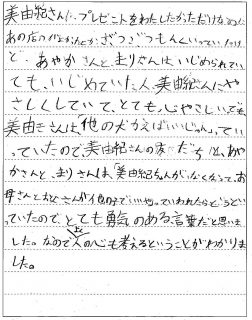 美由紀さんに、プレゼントをわたしたかっただけなのに
あの店
ど、あやかさんと、まりさんは、いじめられてい
ても、いじめていた人、美由紀さんにや
さしくしていて、とても、心やさしい
美由さんは、「他の犬かえばいいじゃん」ってい
っていたので、美由紀さんの友だちは、あや
かさんと、まりさんは、「美由紀ちゃんが、なくなって、お
母さんとお父さんが他の子でいいやっていわれたらどうとい
っていたので、とても勇気のある言葉だと思いま
した。なので人の心も考えるということがわかりま
した。